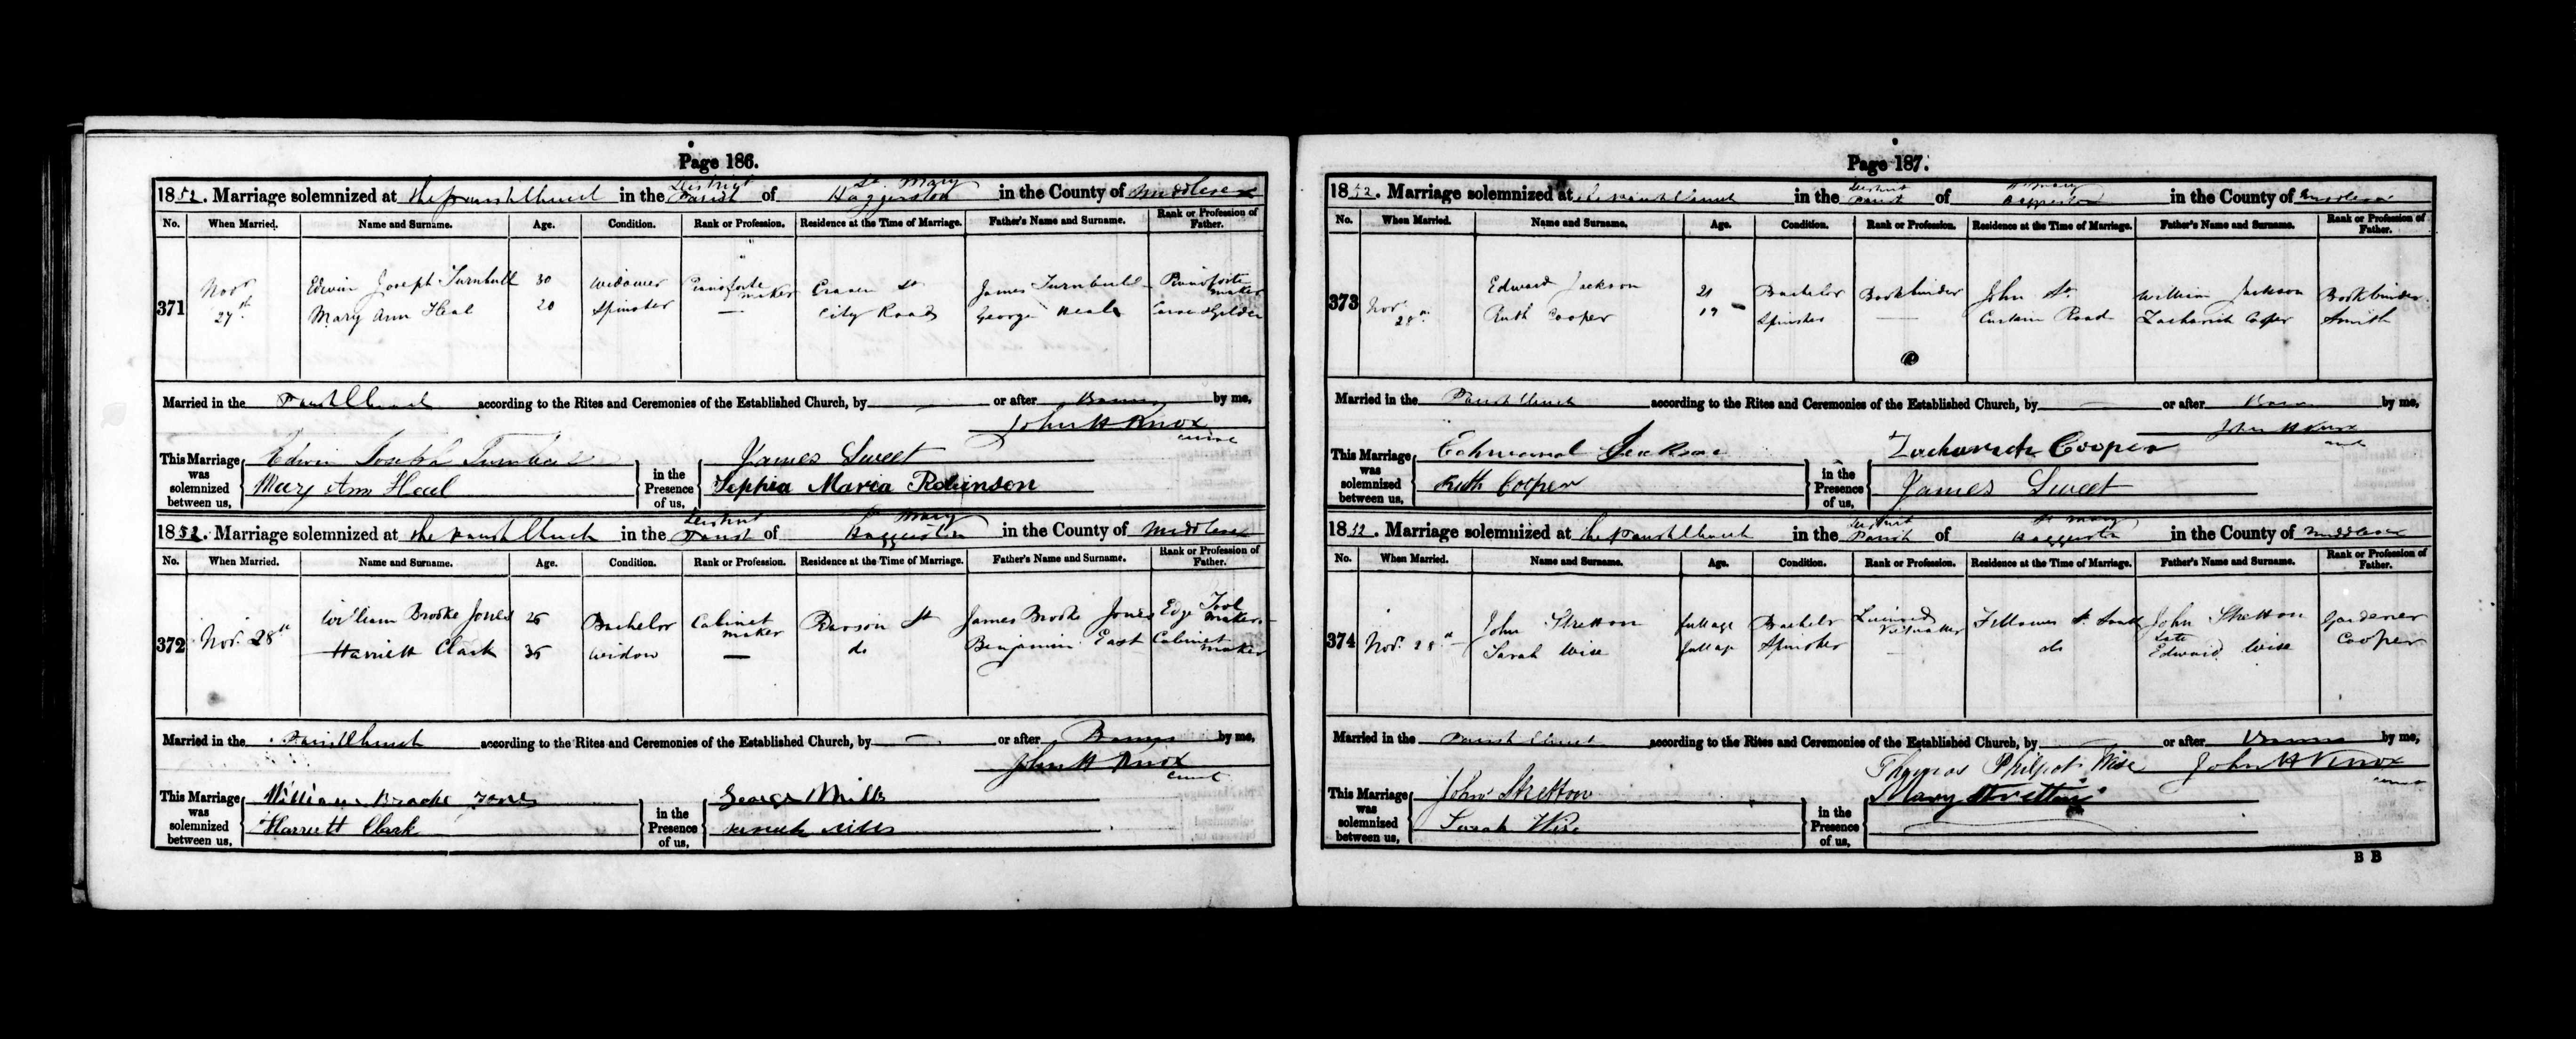 Page 186.
1852. Marriage solemnized at the parish Church in the District Parish of St. Mary Haggerston in the County of Middlesex
No. When Married. Name and Surname. Age. Condition. Rank or Profession. Residence at the Time of Marriage. Father's Name and Surname. Rank or Profession of Father.
371 Novr 27th Edwin Joseph Turnbull 30 Widower Pianoforte maker Craven St James Turnbull Pianoforte maker
Mary Ann Heal 20 Spinster — City Road George Heal Carver & Gilder
Married in the Parish Church according to the Rites and Ceremonies of the Established Church, by — or after Banns by me,
John H Knox
curate
This Marriage was solemnized between us, Edwin Joseph Turnbull in the Presence of us, James Sweet
Mary Ann Heal Sophia Maria Robinson
1852. Marriage solemnized at the parish Church in the District Parish of St Mary Haggerston in the County of Middlesex
No. When Married. Name and Surname. Age. Condition. Rank or Profession. Residence at the Time of Marriage. Father's Name and Surname. Rank or Profession of Father.
372 Nov. 28th William Brooke Jones 26 Bachelor Cabinet maker St James Brooke Jones Edge Tool maker
Harriett Clark 36 Widow — do Benjamin East Cabinet maker
Married in the Parish Church according to the Rites and Ceremonies of the Established Church, by — or after Banns by me,
John H Knox
curate
This Marriage was solemnized between us, William Brooke Jones in the Presence of us, George Mills
Harriett Clark Mills
Page 187.
1852. Marriage solemnized at the parish Church in the District Parish of St Mary Haggerston in the County of Middlesex
No. When Married. Name and Surname. Age. Condition. Rank or Profession. Residence at the Time of Marriage. Father's Name and Surname. Rank or Profession of Father.
373 Nov. 28th Edward Jackson 21 Bachelor Bookbinder John St. William Jackson Bookbinder
Ruth Cooper 19 Spinster — Curtain Road Zachariah Cooper Smith
Married in the Parish Church according to the Rites and Ceremonies of the Established Church, by — or after Banns by me,
John H Knox
curate
This Marriage was solemnized between us, Edward Jackson in the Presence of us, Zachariah Cooper
Ruth Cooper James Sweet
1852. Marriage solemnized at the parish Church in the District Parish of St Mary Haggerston in the County of Middlesex
No. When Married. Name and Surname. Age. Condition. Rank or Profession. Residence at the Time of Marriage. Father's Name and Surname. Rank or Profession of Father.
374 Nov. 28th John Stretton full age Bachelor Licensed Victualler Fellows St South John Stretton Gardener
Sarah Wise full age Spinster — do Late Edward Wise Cooper
Married in the Parish Church according to the Rites and Ceremonies of the Established Church, by — or after Banns by me,
John H Knox
curate
This Marriage was solemnized between us, John Stretton in the Presence of us, Thomas Philpot Wise
Sarah Wise Mary Stretton
B B